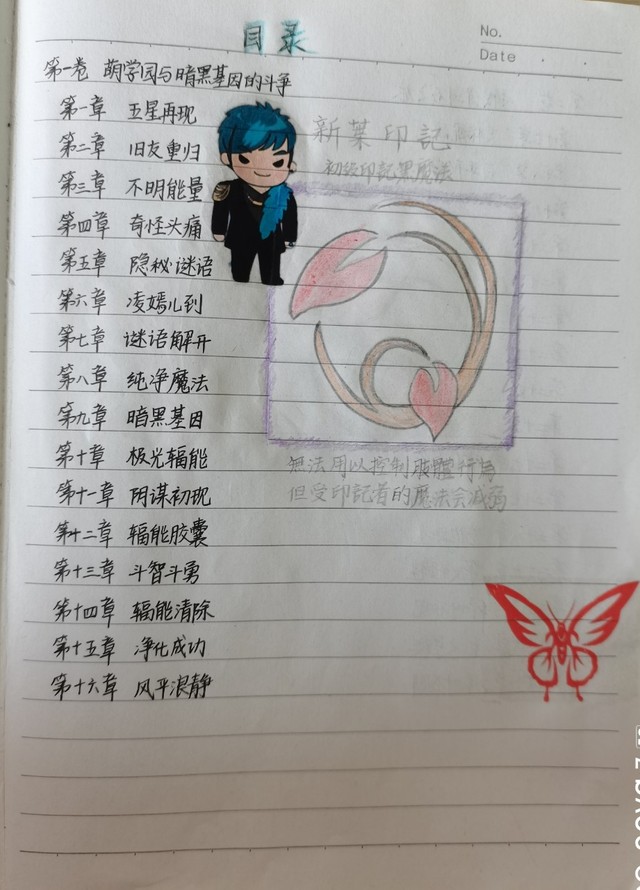 目录
No.
Date
第一卷 萌学园与暗黑基因的斗争
第一章 五星再现
第二章 旧友重归
第三章 不明能量
第四章 奇怪头痛
第五章 隐秘谜语
第六章 凌嫣儿到
第七章 谜语解开
第八章 纯净魔法
第九章 暗黑基因
第十章 极光辐能
第十一章 阴谋初现
第十二章 辐能胶囊
第十三章 斗智斗勇
第十四章 辐能清除
第十五章 净化成功
第十六章 风平浪静
新葉印記
初級印記黑魔法
無法用以控制肢體行為
但受印記者的魔法会减弱